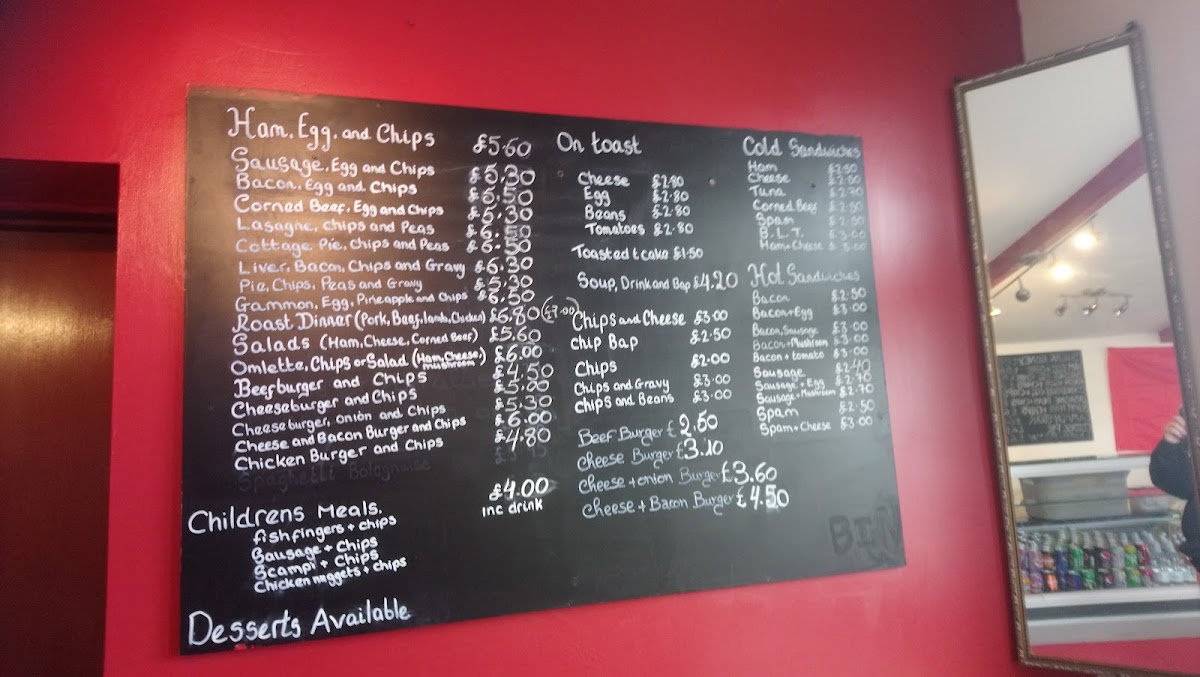 Ham, Egg, and Chips £5.60
Sausage, Egg and Chips £5.30
Bacon, Egg and Chips £5.50
Corned Beef, Egg and Chips £5.30
Lasagne, chips and Peas £6.50
Cottage Pie, Chips and Peas £5.50
Liver, Bacon, Chips and Gravy £6.30
Pie, Chips, Peas and Gravy £5.30
Gammon, Egg, Pineapple and Chips £6.50
Roast Dinner (Pork, Beef, lamb, Chicken) £6.80 (£7.00)
Salads (Ham, Cheese, Corned Beef) £5.60
Omlette, Chips or Salad (Ham, Cheese, mushroom) £6.00
Beefburger and Chips £4.50
Cheeseburger and Chips £5.00
Cheeseburger, onion and Chips £5.30
Cheese and Bacon Burger and Chips £6.00
Chicken Burger and Chips £4.80
Spaghetti Bolognaise
Childrens Meals. £4.00
inc drink
fishfingers + chips
Sausage + Chips
Scampi + Chips
Chicken nuggets + chips
Desserts Available
On toast
Cheese £2.80
Egg £2.80
Beans £2.80
Tomatoes £2.80
Toasted t cake £1.50
Soup, Drink and Bap £4.20
Chips and Cheese £3.00
chip Bap £2.50
Chips £2.00
Chips and Gravy £3.00
chips and Beans £3.00
Beef Burger £2.50
Cheese Burger £3.10
Cheese + onion Burger £3.60
Cheese + Bacon Burger £4.50
Cold Sandwiches
Ham £2.50
Cheese £2.50
Tuna £2.70
Corned Beef £2.50
Spam £2.50
B.L.T. £3.00
Ham + Cheese £3.00
Hot Sandwiches
Bacon £2.50
Bacon + Egg £3.00
Bacon, Sausage £3.00
Bacon + Mushroom £3.00
Bacon + tomato £3.00
Sausage £2.40
Sausage + Egg £2.70
Sausage + Mushroom £2.70
Spam £2.50
Spam + Cheese £3.00
BEN